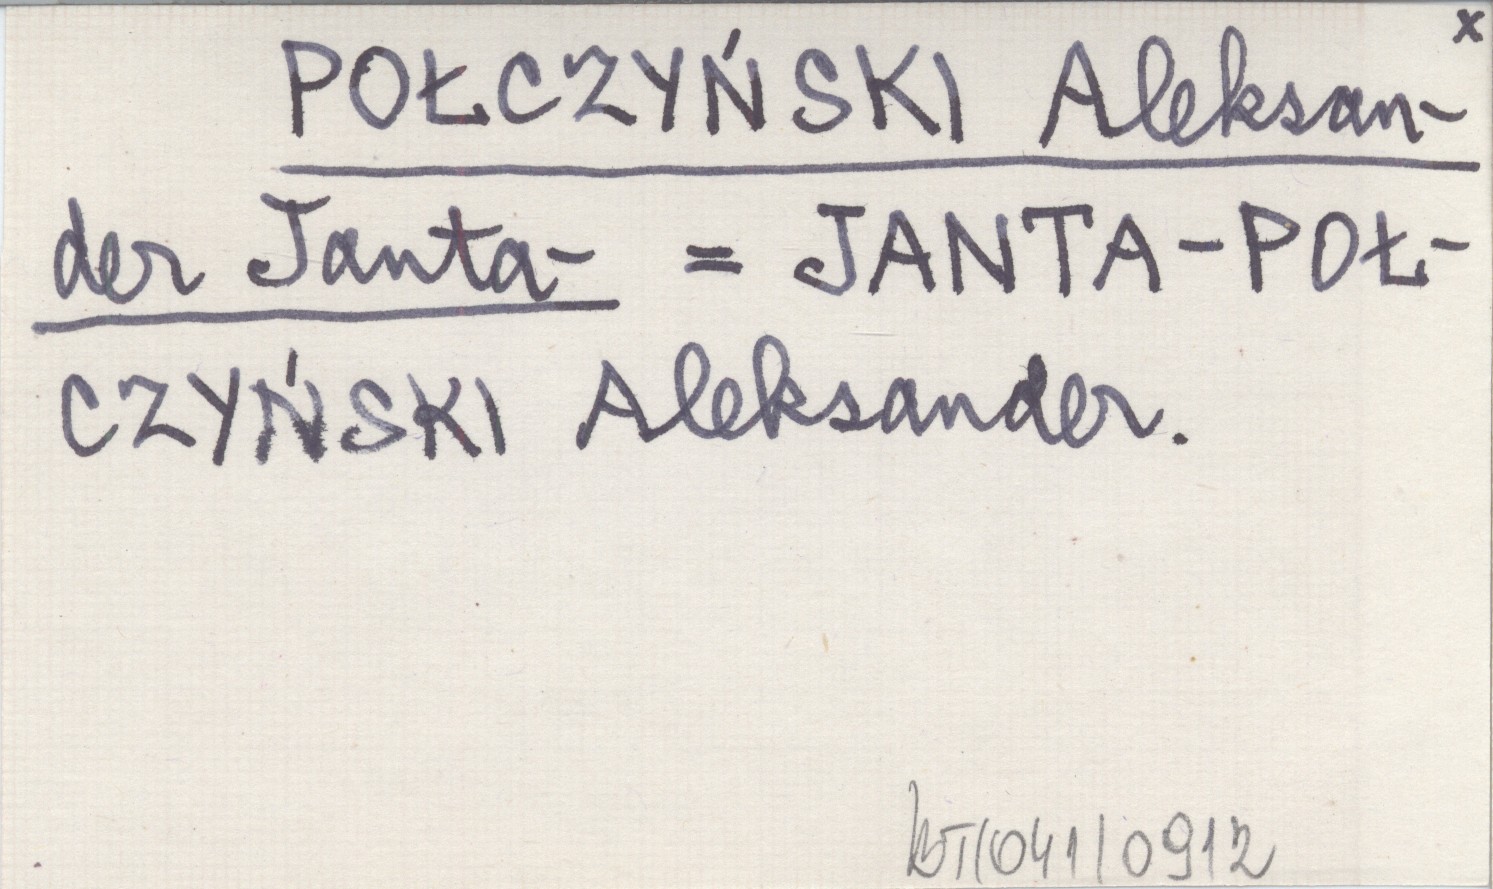 x
POŁCZYŃSKI Aleksan-
der Janta- = JANTA-POŁ-
CZYŃSKI Aleksander.
041/0912